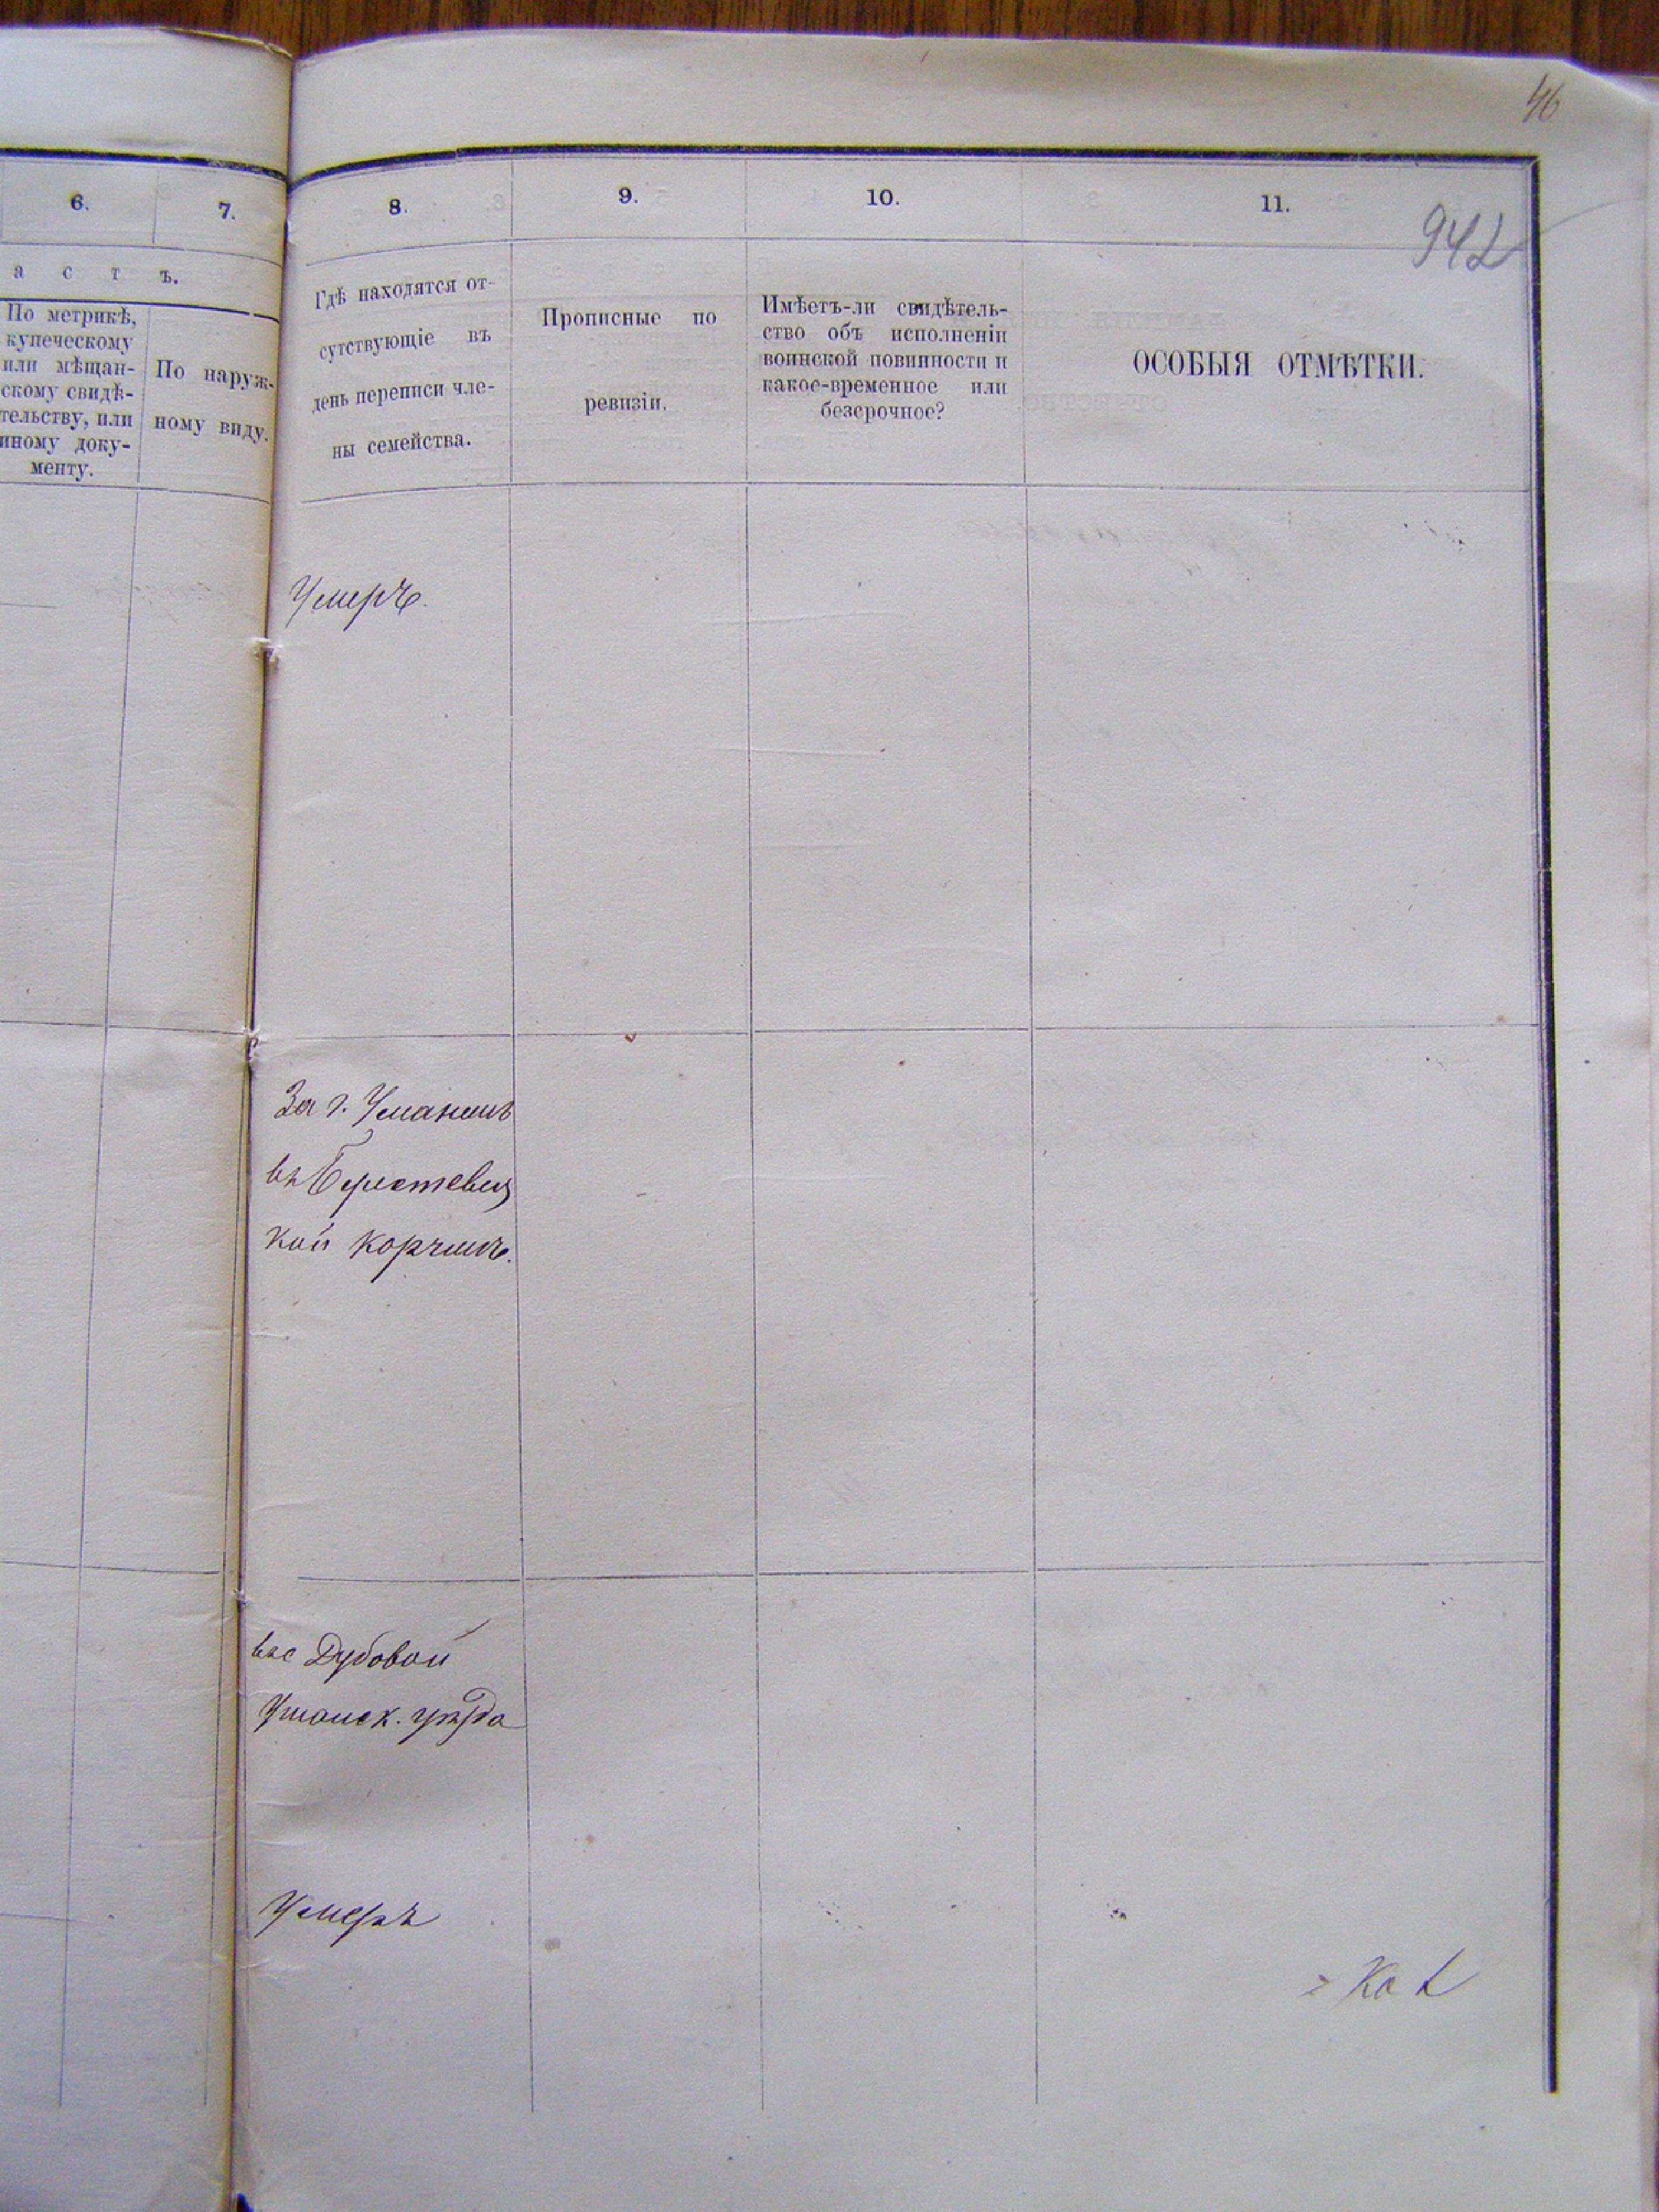 46
6.
7.
8.
9.
10.
11.
942
а с т ъ.
По метрикѣ,
купеческому
или мѣщан-
скому свидѣ-
тельству, или
иному доку-
менту.
По наруж-
ному виду.
Гдѣ находятся от-
сутствующіе въ
день переписи чле-
ны семейства.
Прописные по
ревизіи.
Имѣетъ-ли свидѣтель-
ство объ исполненіи
воинской повинности и
какое-временное или
безсрочное?
ОСОБЫЯ ОТМѢТКИ.
Умеръ.
За г. Уманемъ
въ
кой корчмѣ.
въ с Дубовой
Уманск. уѣзда
Умеръ